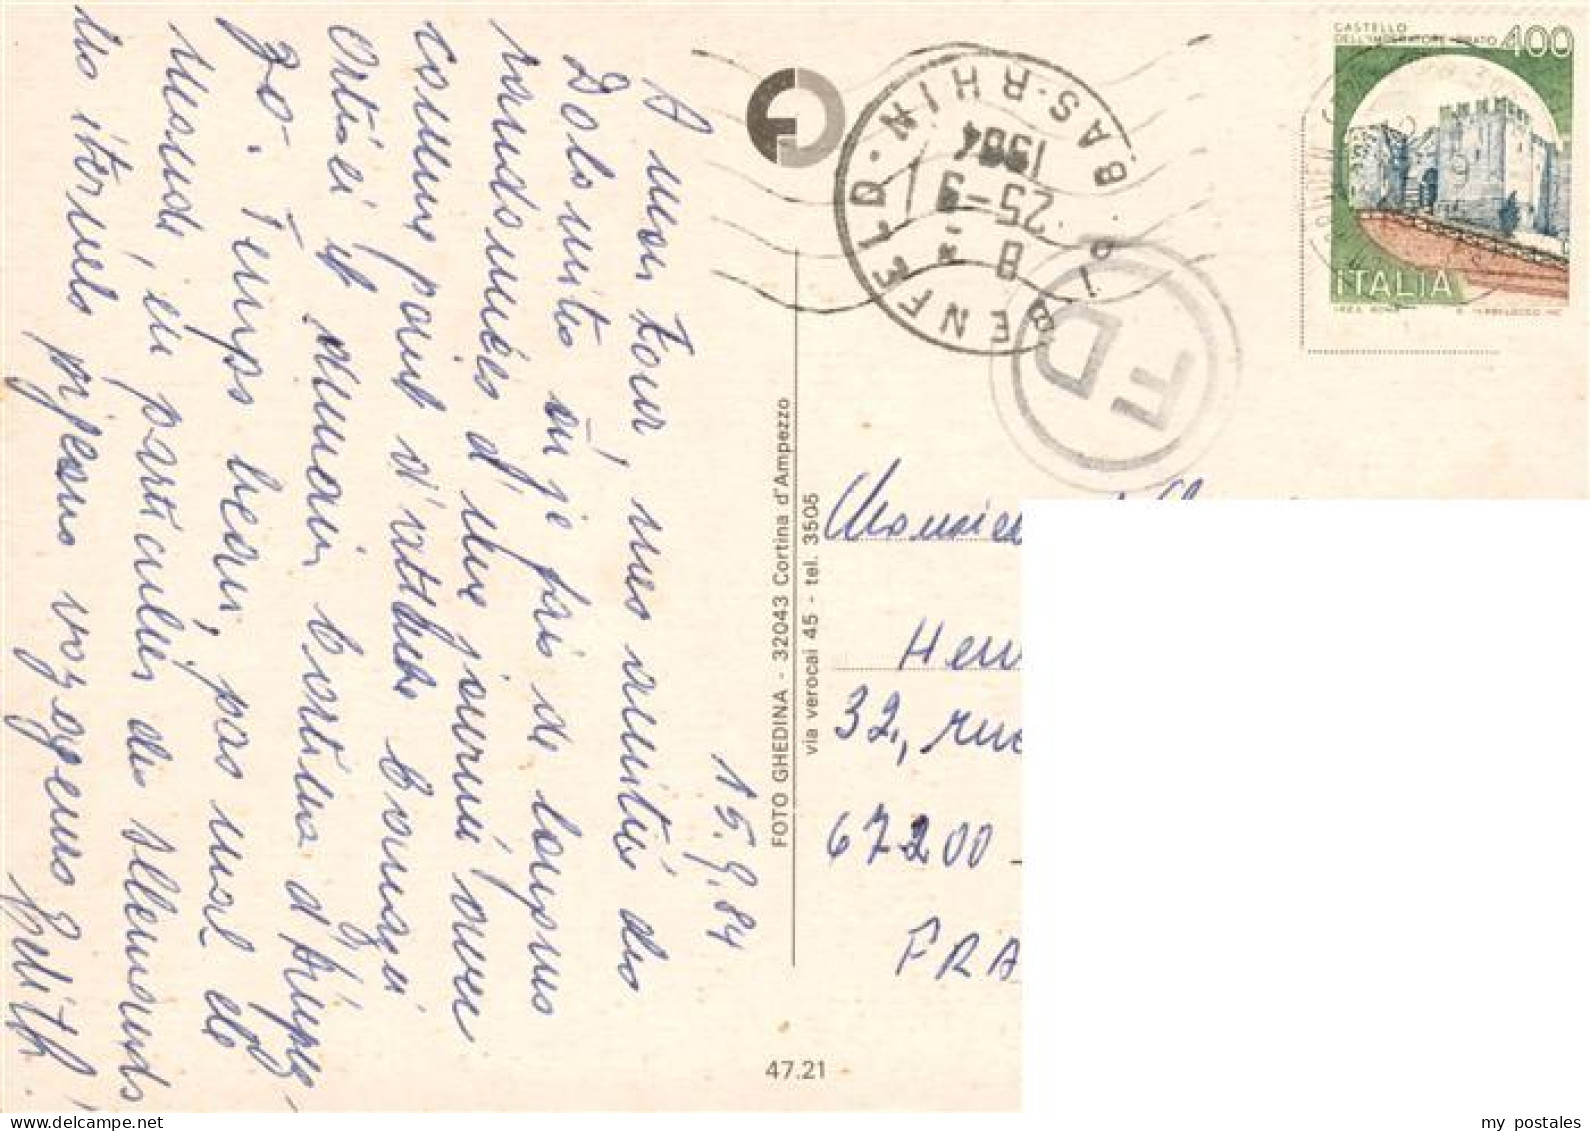 15.9.84
A mon tour, mes amitiés des
Dolomites où je fais de longues
randonnées d'une journée avec
comme point d'attache
Ortisei et demain Cortina d'Ampez-
zo. Temps beau, pas mal de
monde, en particulier des allemands
Edith.
FOTO GHEDINA - 32043 Cortina d'Ampezzo
via verocai 45 - tel. 3505
47.21
CASTELLO
DELL'IMPERATORE PRATO 400
ITALIA
BENFELD
BAS-RHIN
8
25-9
1984
FD
Hen
32, rue
67200 -
FRA
my postales